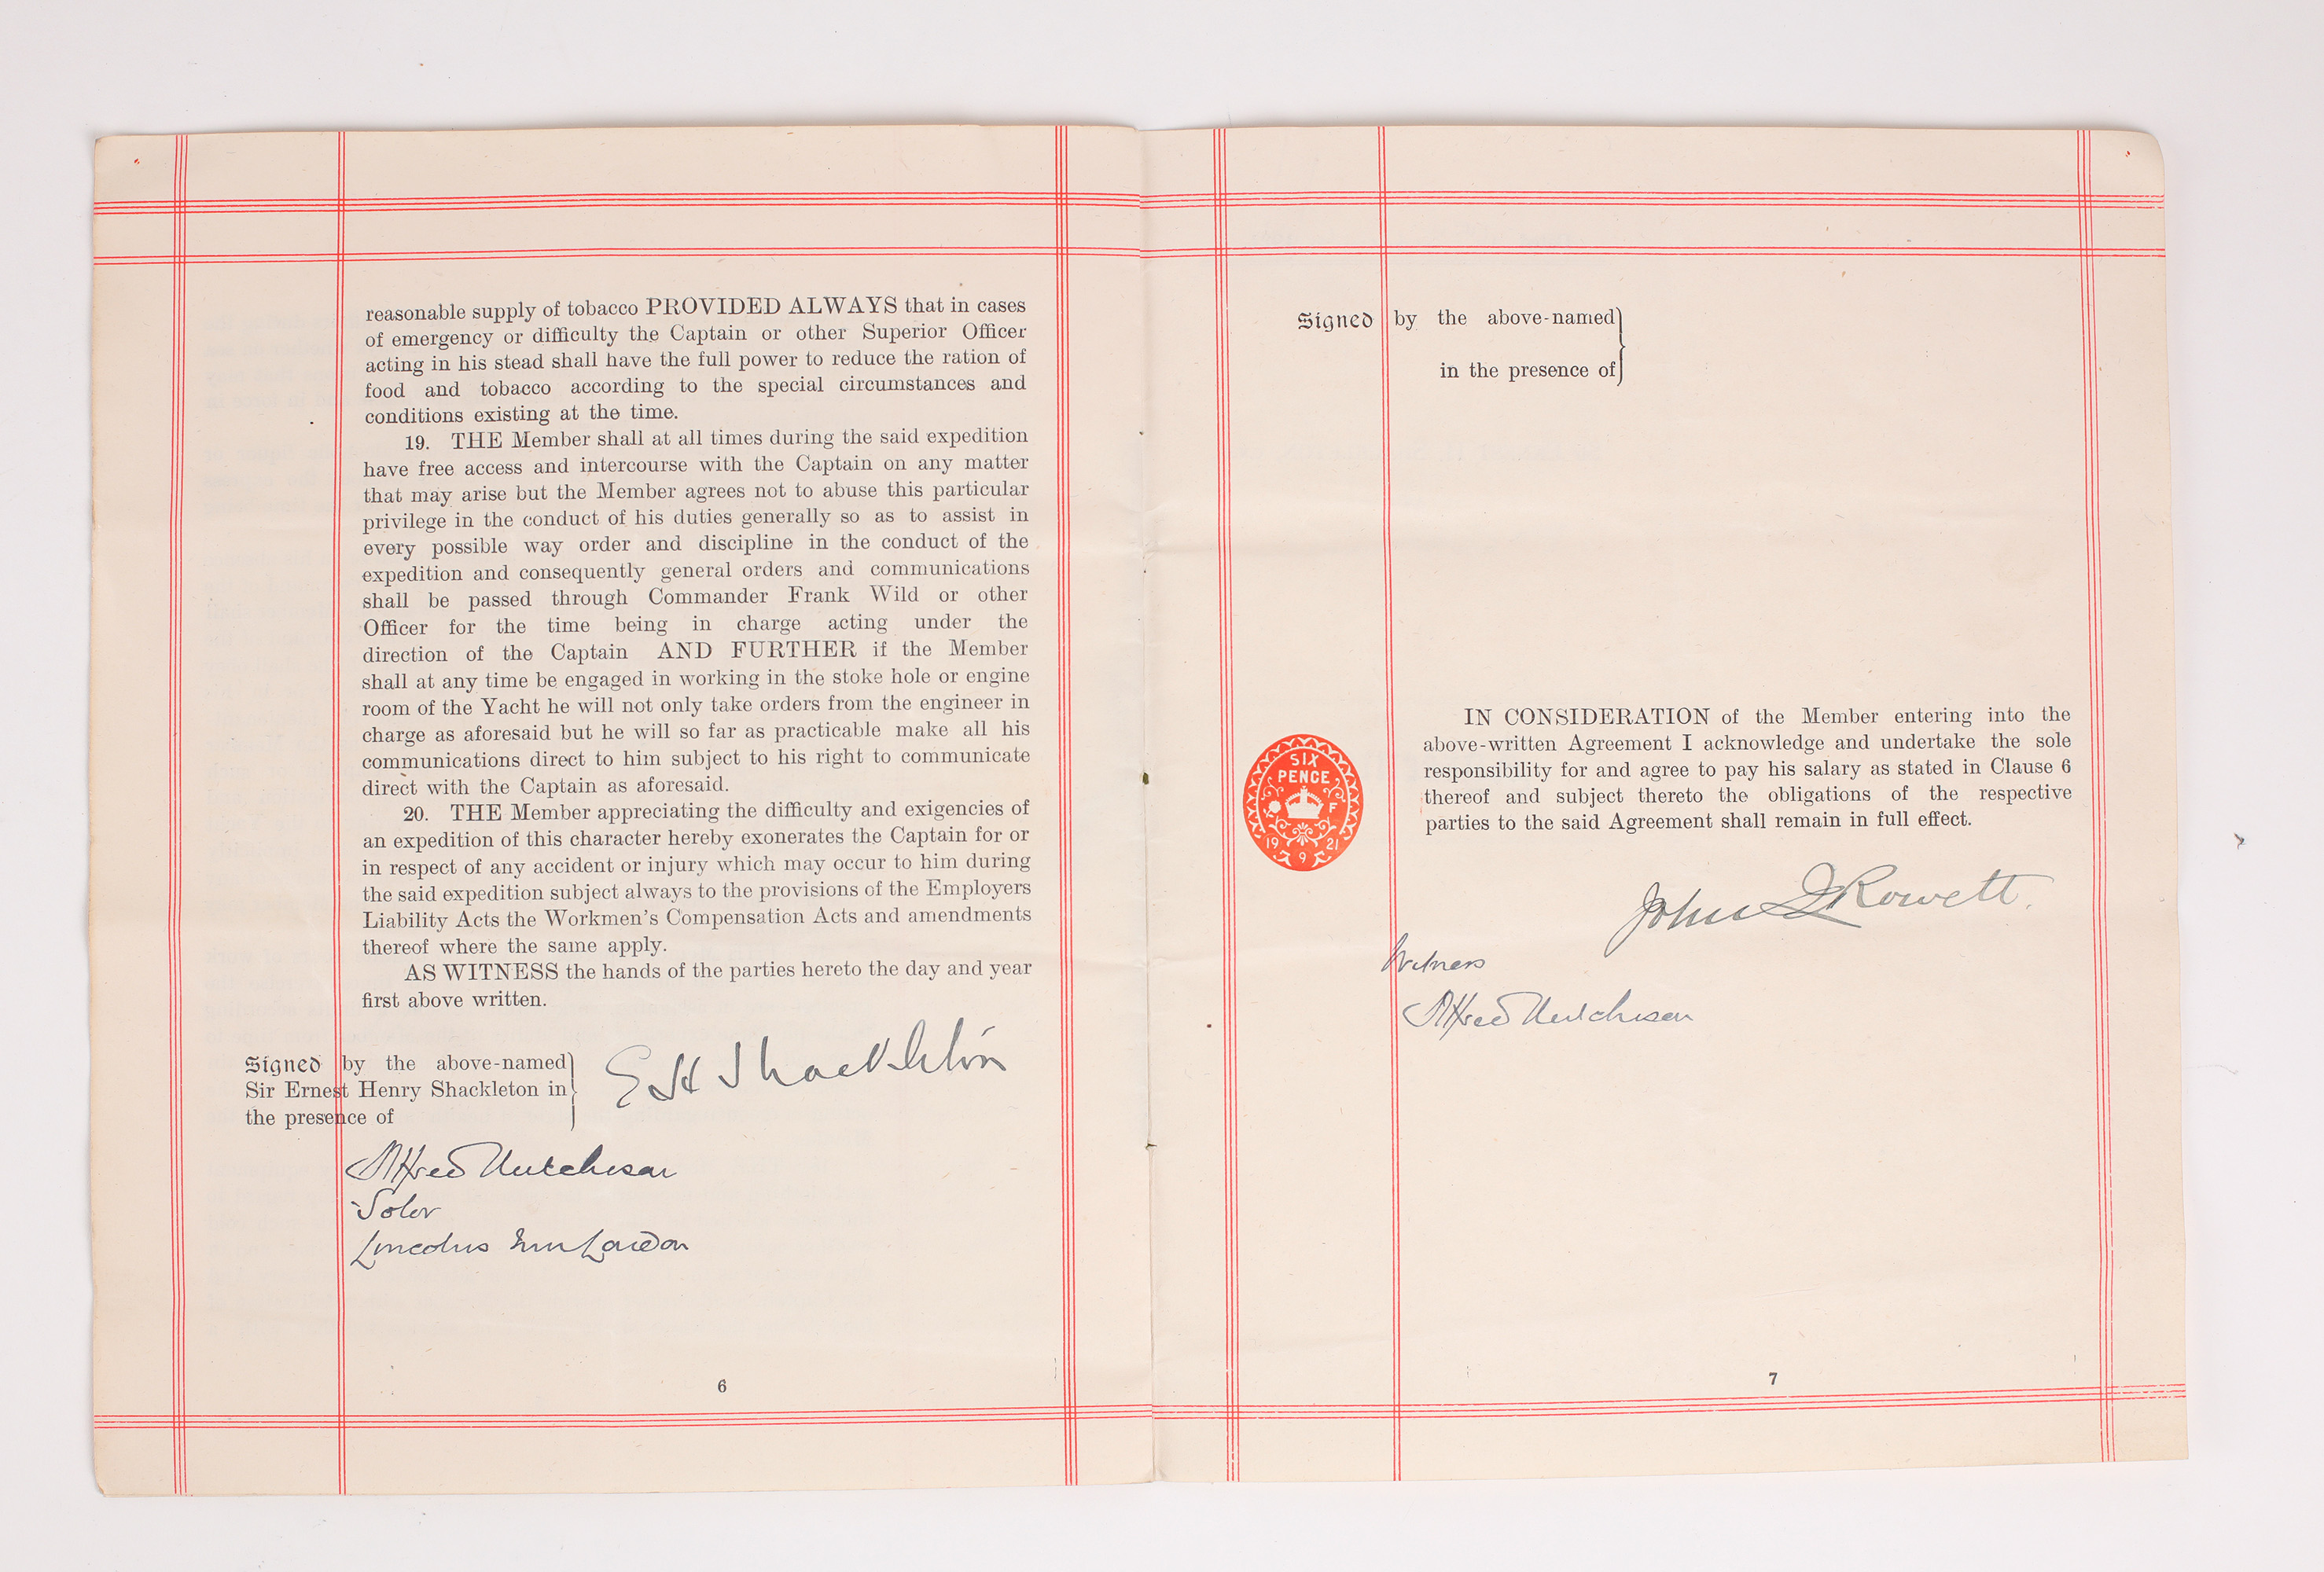 reasonable supply of tobacco PROVIDED ALWAYS that in cases
of emergency or difficulty the Captain or other Superior Officer
acting in his stead shall have the full power to reduce the ration of
food and tobacco according to the special circumstances and
conditions existing at the time.
19. THE Member shall at all times during the said expedition
have free access and intercourse with the Captain on any matter
that may arise but the Member agrees not to abuse this particular
privilege in the conduct of his duties generally so as to assist in
every possible way order and discipline in the conduct of the
expedition and consequently general orders and communications
shall be passed through Commander Frank Wild or other
Officer for the time being in charge acting under the
direction of the Captain AND FURTHER if the Member
shall at any time be engaged in working in the stoke hole or engine
room of the Yacht he will not only take orders from the engineer in
charge as aforesaid but he will so far as practicable make all his
communications direct to him subject to his right to communicate
direct with the Captain as aforesaid.
20. THE Member appreciating the difficulty and exigencies of
an expedition of this character hereby exonerates the Captain for or
in respect of any accident or injury which may occur to him during
the said expedition subject always to the provisions of the Employers
Liability Acts the Workmen's Compensation Acts and amendments
thereof where the same apply.
AS WITNESS the hands of the parties hereto the day and year
first above written.
Signed by the above-named
Sir Ernest Henry Shackleton in
the presence of
E H Shackleton
Alfred Hutchison
Solor
Lincolns Inn London
6
Signed by the above-named
in the presence of
IN CONSIDERATION of the Member entering into the
above-written Agreement I acknowledge and undertake the sole
responsibility for and agree to pay his salary as stated in Clause 6
thereof and subject thereto the obligations of the respective
parties to the said Agreement shall remain in full effect.
SIX
PENCE
F
19 21
9
John Q Rowett.
Witness
Alfred Hutchison
7